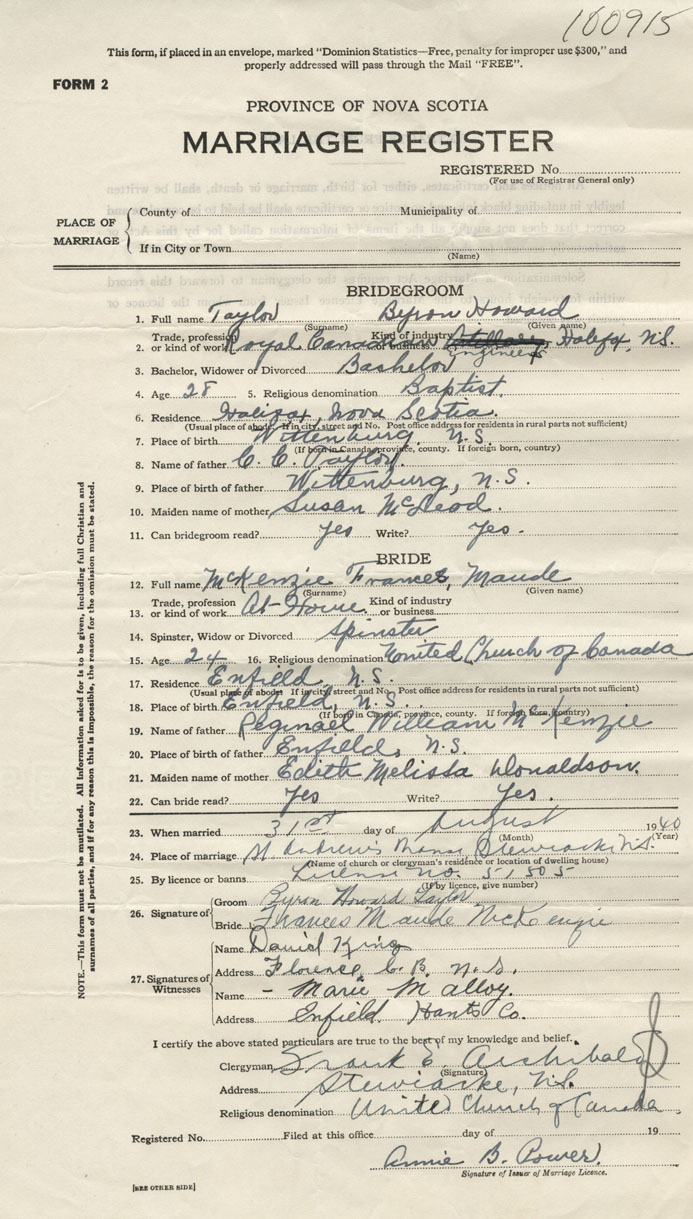 100915
This form, if placed in an envelope, marked "Dominion Statistics—Free, penalty for improper use $300," and
properly addressed will pass through the Mail "FREE".
FORM 2
PROVINCE OF NOVA SCOTIA
MARRIAGE REGISTER
REGISTERED No.
(For use of Registrar General only)
PLACE OF MARRIAGE
County of Municipality of
If in City or Town
(Name)
BRIDEGROOM
1. Full name Taylor Byron Howard
(Surname) (Given name)
Trade, profession Kind of industry
2. or kind of work Royal Canadian or business Engineers Halifax, N.S.
3. Bachelor, Widower or Divorced Bachelor
4. Age 28 5. Religious denomination Baptist.
6. Residence Halifax, Nova Scotia.
(Usual place of abode: If in city, street and No. Post office address for residents in rural parts not sufficient)
7. Place of birth Wittenburg, N.S.
(If born in Canada, province, county. If foreign born, country)
8. Name of father C. C. Taylor.
9. Place of birth of father Wittenburg, N.S.
10. Maiden name of mother Susan McLeod.
11. Can bridegroom read? Yes Write? Yes.
BRIDE
12. Full name McKenzie Frances, Maude
(Surname) (Given name)
Trade, profession Kind of industry
13. or kind of work At Home or business
14. Spinster, Widow or Divorced Spinster
15. Age 24 16. Religious denomination United Church of Canada
17. Residence Enfield, N.S.
(Usual place of abode: If in city, street and No. Post office address for residents in rural parts not sufficient)
18. Place of birth Enfield, N.S.
(If born in Canada, province, county. If foreign born, country)
19. Name of father Reginael William McKenzie
20. Place of birth of father Enfield, N.S.
21. Maiden name of mother Edith Melissa Donaldson.
22. Can bride read? Yes Write? Yes.
23. When married 31st day of August 1940
(Month) (Year)
24. Place of marriage St. Andrew's Manse, Stewiacke N.S.
(Name of church or clergyman's residence or location of dwelling house)
25. By licence or banns License no. 51805
(If by licence, give number)
26. Signature of
Groom Byron Howard Taylor
Bride Frances Maude McKenzie
27. Signatures of Witnesses
Name Daniel King
Address Florence, C.B. N.S.
Name - Marie Malloy.
Address Enfield Hants Co.
I certify the above stated particulars are true to the best of my knowledge and belief.
Clergyman Frank E. Archibald
(Signature)
Address Stewiacke, N.S.
Religious denomination United Church of Canada
Registered No. Filed at this office day of 19
Annie B. Power.
Signature of Issuer of Marriage Licence.
[SEE OTHER SIDE]
NOTE.—This form must not be mutilated. All information asked for is to be given, including full Christian and
surnames of all parties, and if for any reason this is impossible, the reason for the omission must be stated.